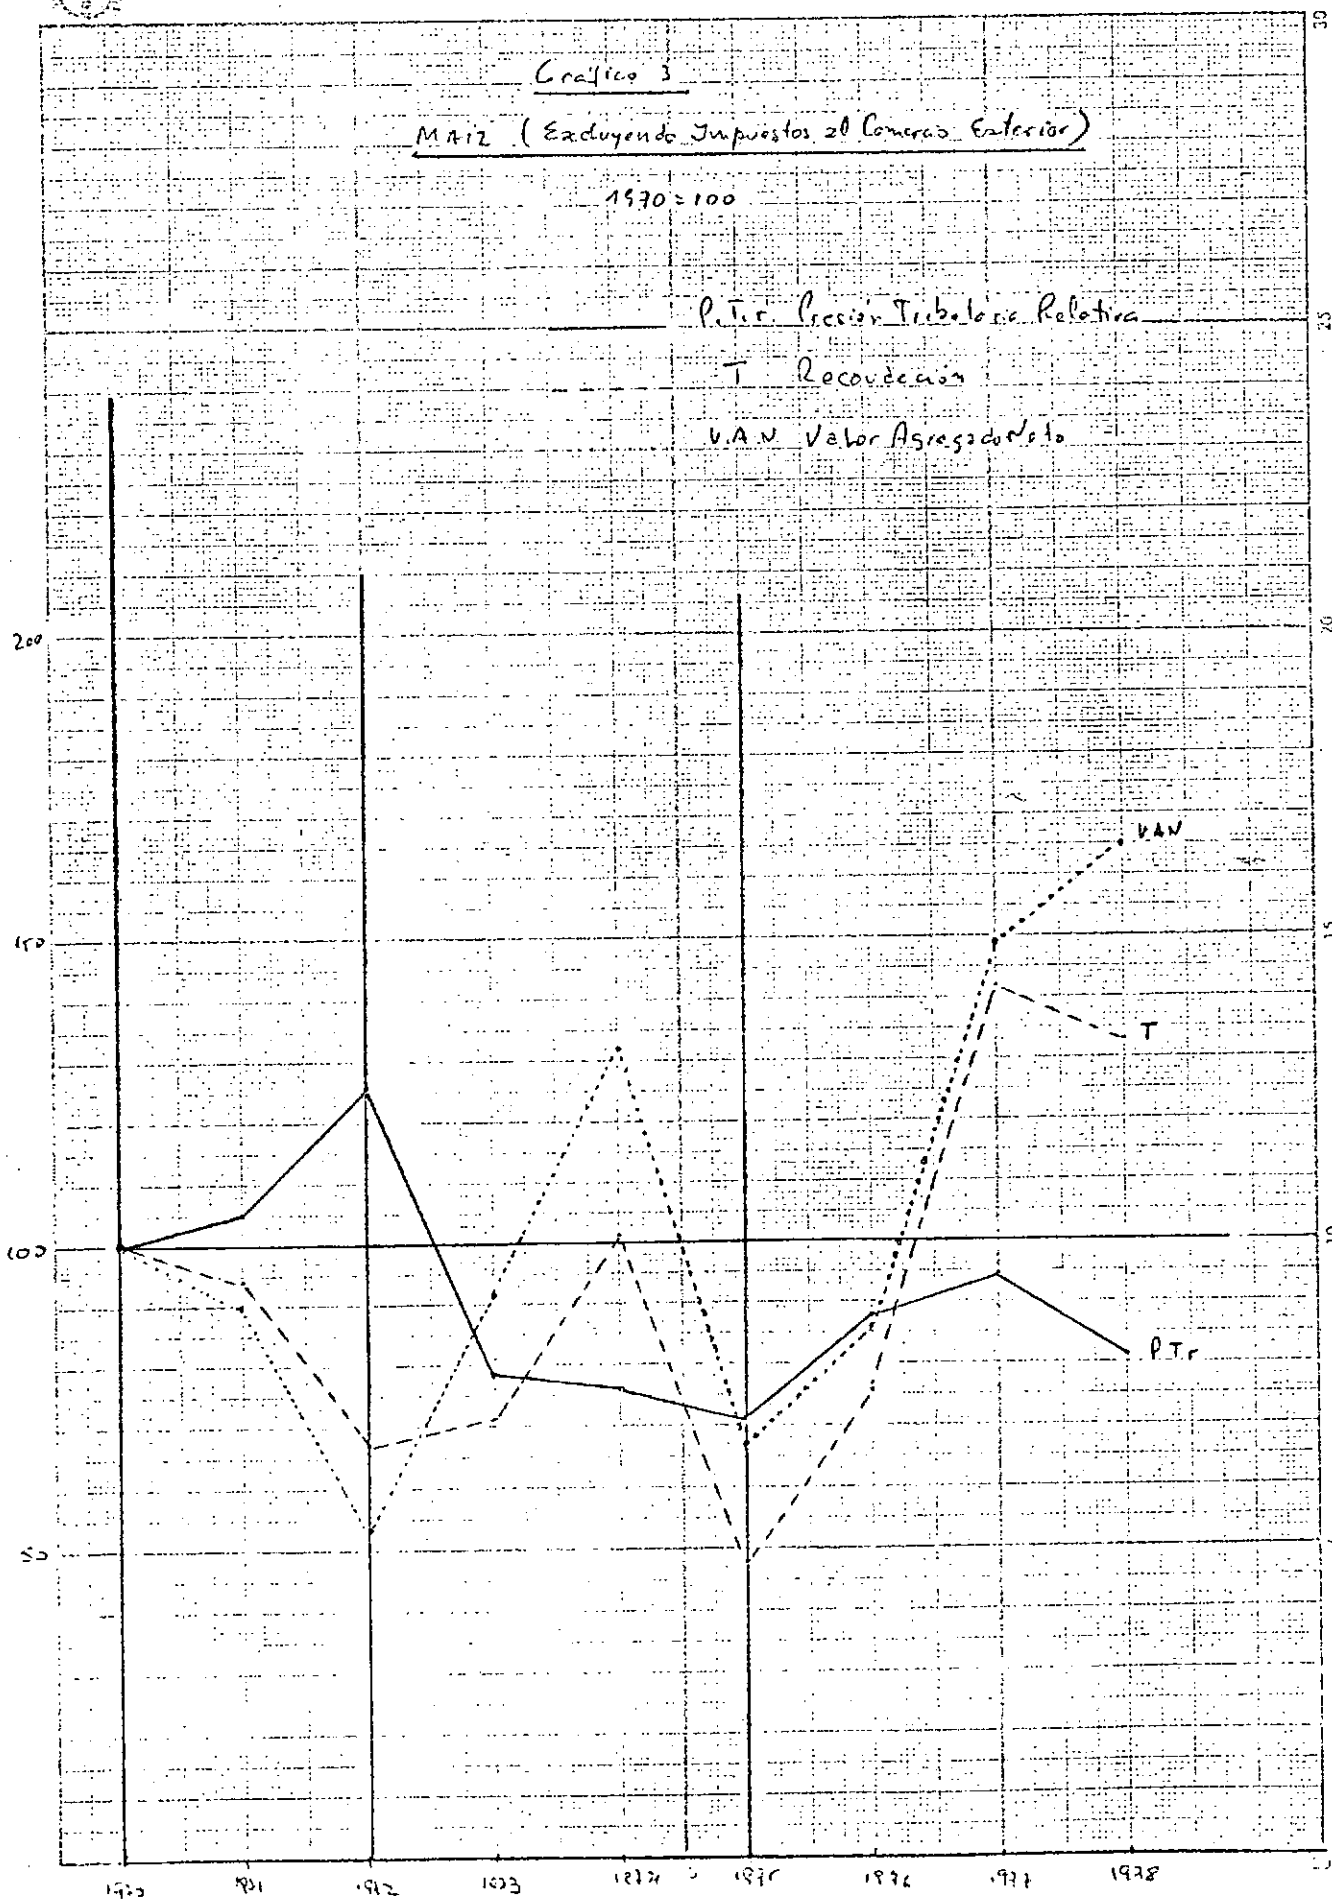 Gráfico 3
MAIZ (Excluyendo Impuestos al Comercio Exterior)
1970=100
P.T.r. Presión Tributaria Relativa
T Recaudación
V.A.N Valor Agregado Neto
30
25
200
20
VAN
150
15
T
100
10
P.T.r
50
1970 1971 1972 1973 1974 1975 1976 1977 1978